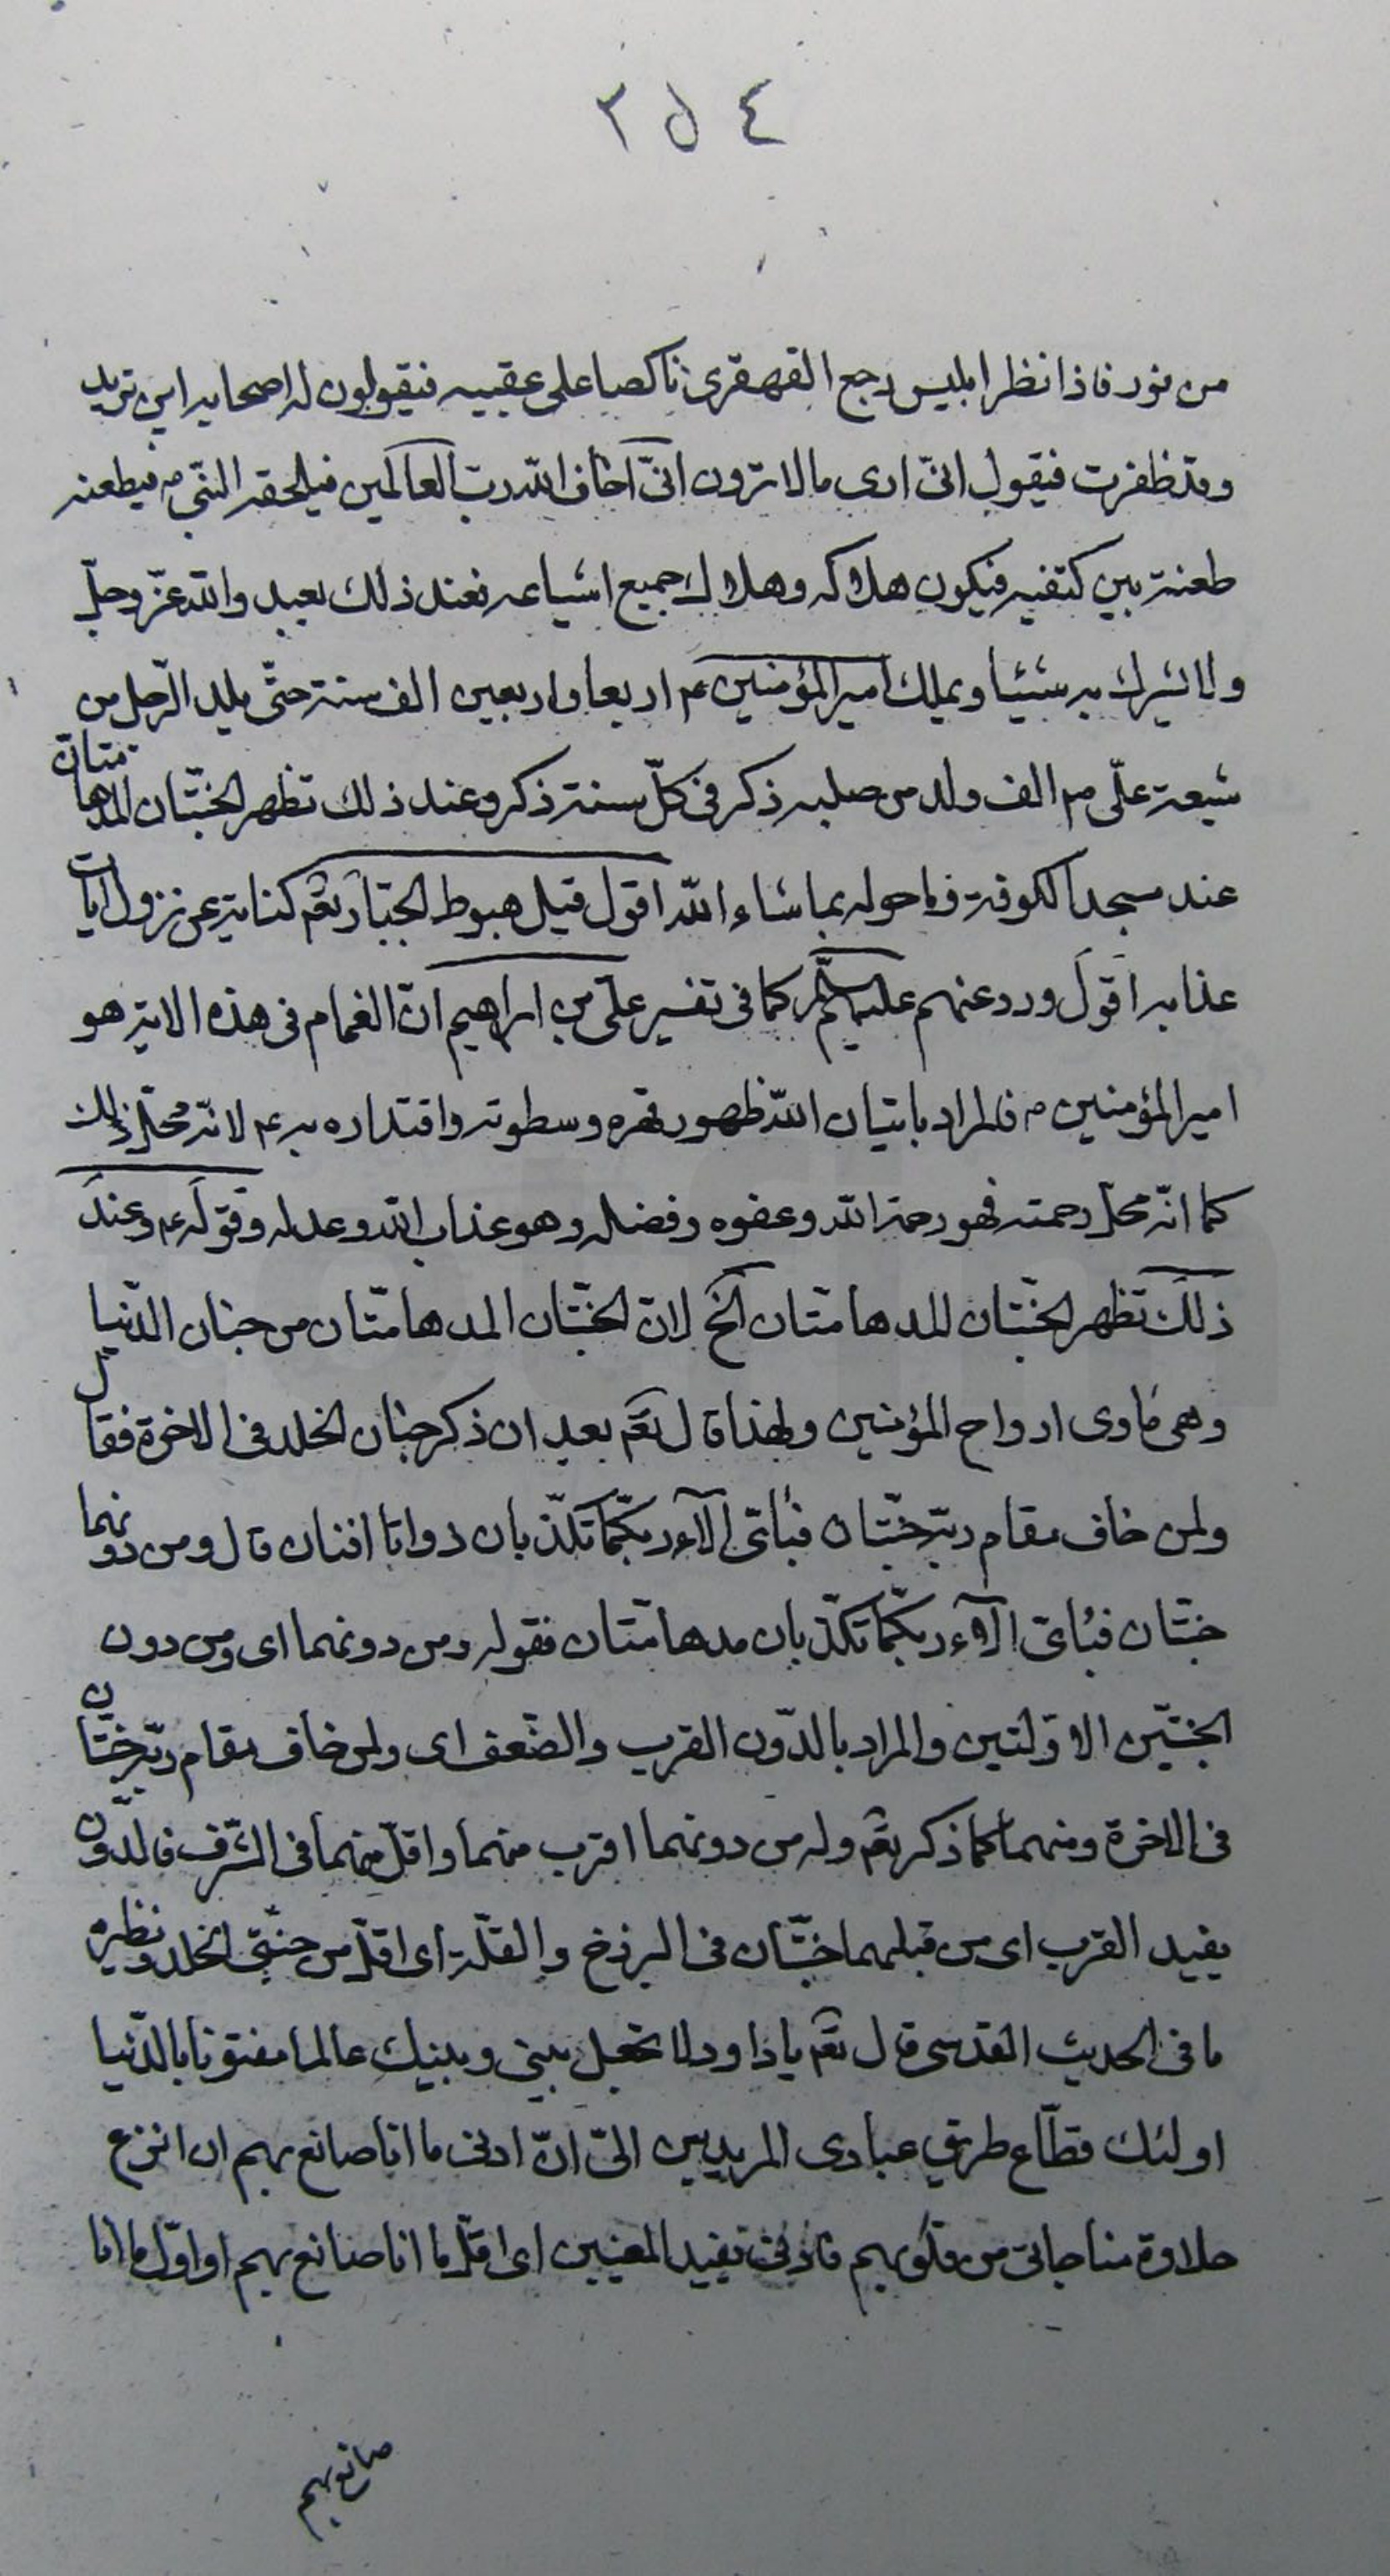 ٢٥٤
من نور فاذا نظر ابليس رجع القهقرى ناكصا على عقبيه فيقولون له اصحابه اين تريد
وقد ظفرت فيقول انّى ارى ما لا ترون انّى اخاف اللّه ربّ العالمين فيلحقه النّبى ص فيطعنه
طعنة بين كتفيه فيكون هلاكه وهلاك جميع اشياعه فعند ذلك يعبد واللّه عزّ وجلّ
ولا يشرك به شيئا ويملك امير المؤمنين عم اربعا واربعين الف سنة حتّى يلد الرّجل من
شيعة علّى عم الف ولد من صلبه ذكر فى كلّ سنة ذكر وعند ذلك تظهر الجنّتان المدهامّتان
عند مسجد الكوفة وما حوله بما شاء اللّه اقول قيل هبوط الجبّار تعم كناية عن نزول ايات
عذابه اقول ورد عنهم عليهم السلام كما فى تفسير علّى بن ابراهيم انّ الغمام فى هذه الاية هو
امير المؤمنين ع فالمراد باتيان اللّه ظهور قهره وسطوته واقتداره به عم لانّه محلّ ذلك
كما انّه محلّ رحمته فهو رحمة اللّه وعفوه وفضله وهو عذاب اللّه وعدله وقوله عم وعند
ذلك تظهر الجنّتان المدهامتان الخ لانّ الجنّتان المدهامتّان من جنان الدّنيا
وهى مأوى ارواح المؤمنين ولهذا قال تعم بعد ان ذكر جنان الخلد فى الاخرة فقال
ولمن خاف مقام ربّه جنّتان فبأىّ الآء ربّكما تكذّبان ذواتا افنان قال ومن دونهما
جنّتان فبأىّ الآء ربّكما تكذّبان مدهامّتان فقوله ومن دونهما اى ومن دون
الجنّتين الاوّلتين والمراد بالدّون القرب والضّعف اى ولمن خاف مقام ربّه جنّتان
فى الاخرة ومنهما كما ذكر تعم وله من دونهما اقرب منهما واقلّ منهما فى الشّرف فالدّون
يفيد القرب اى من قبلهما جنّتان فى البرزخ والقلّة اى اقلّ من جنّتى الخلد ونظيره
ما فى الحديث القدسى قال تعم يا داود لا تجعل بينى وبينك عالما مفتونا بالدّنيا
اولئك قطّاع طريق عبادى المريدين الىّ انّ ادنى ما انا صانع بهم ان انزع
حلاوة مناجاتى من قلوبهم فادنى تفيد المعنيين اى اقلّ ما انا صانع بهم او اوّل ما انا
صانع بهم